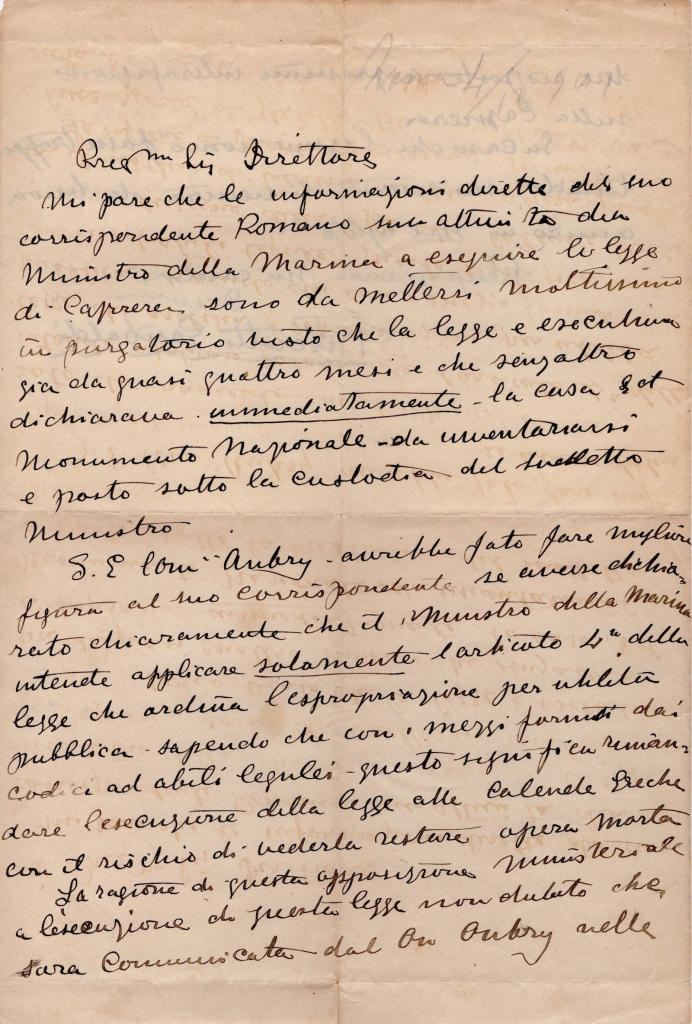 Preg mo Sig Direttore
Mi pare che le informazioni dirette del suo
corrispondente Romano sull attività del
Ministro della Marina a eseguire la legge
di Caprera sono da mettersi moltissimo
in purgatorio visto che la legge e esecutiva
gia da quasi quattro mesi e che senz'altro
dichiarava immediatamente - la casa
Monumento Nazionale - da inventariarsi
e posto sotto la custodia del suddetto
Ministro
S. E l'on Aubry - avrebbe fato fare migliore
figura al suo corrispondente se avesse dichia-
rato chiaramente che il Ministro della Marina
intende applicare solamente l'articolo 4o della
legge che ordina l'espropriazione per utilita
pubblica - sapendo che con i mezzi forniti dai
codici ad abili legulei - questo significa riman-
dare l'esecuzione della legge alle Calende Greche
con il rischio di vederla restare opera morta
La ragione di questa opposizione ministeriale
a l'esecuzione di questa legge non dubito che
sara comunicata dal On Aubry nella